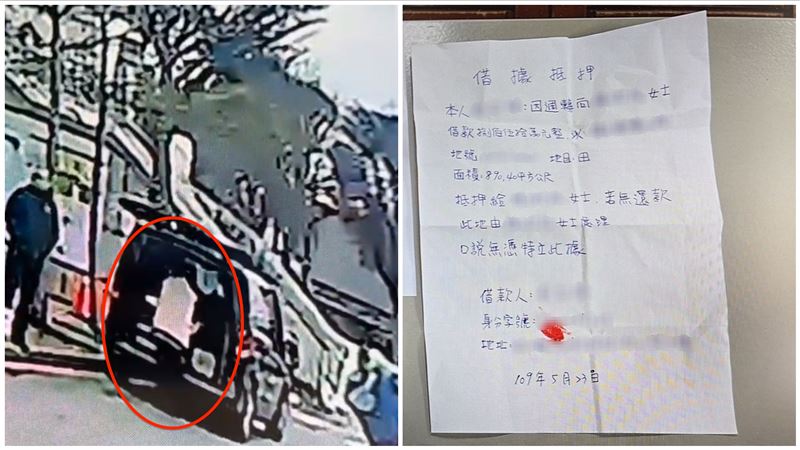 借據抵押
本人 因週轉向 女士
借款捌佰伍拾萬元整, 以
地號 地目:田
面積: 870.40平方公尺
抵押給 女士, 若無還款
此地由 女士處理
口說無憑特立此據
借款人:
身分字號:
地址:
109年5月23日